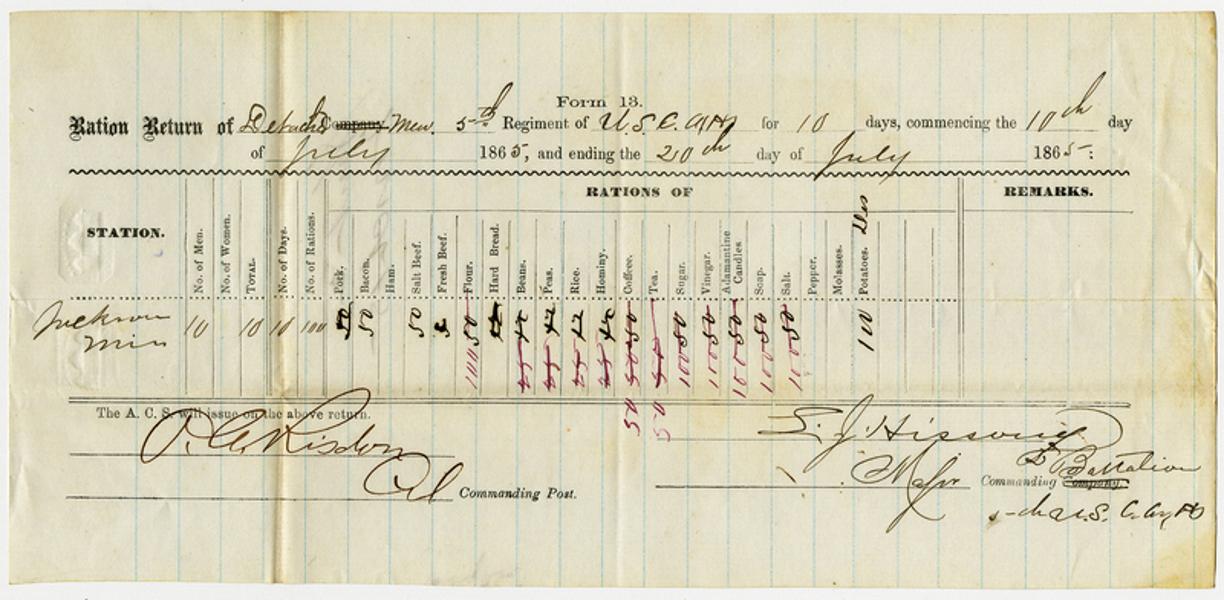 Form 13.
Ration Return of Detachd Company Men. 5th Regiment of U.S.C. Arty for 10 days, commencing the 10th day
of July 1865, and ending the 20th day of July 1865:
RATIONS OF
REMARKS.
STATION.
No. of Men.
No. of Women.
TOTAL.
No. of Days.
No. of Rations.
Pork.
Bacon.
Ham.
Salt Beef.
Fresh Beef.
Flour.
Hard Bread.
Beans.
Peas.
Rice.
Hominy.
Coffee.
Tea.
Sugar.
Vinegar.
Adamantine Candles
Soap.
Salt.
Pepper.
Molasses.
Potatoes.
Jackson 10 10 10 100 50 50 50 50 50 50 50 50 50 100
Miss
100 100 100 100 100 100
50 50
The A. C. S. will issue on the above return.
O. A. Risdon
Col Commanding Post.
E. J. Hissong
Major Commanding Company. Battalion
5th U.S. C. Arty